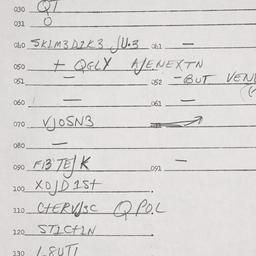 030 QT
031 O
040 SK1M3D2K3 JU.3 041 —
050 + QGLY A/ENEXTN
051 — 052 -BUT VENU
060 — 061 —
070 VJOSN3
080 —
090 F13TEJK 091 —
100 XOJD1St
110 C+ERV/3C QPOL
120 ST1CT1N
130 1.8UT1